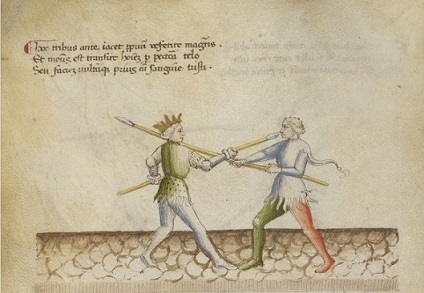 Hoc tribus ante, iacet ppriu referire magris.
Et meus est transire hoiez p pectora telo
Seu faciez vultuq prius in sanguine